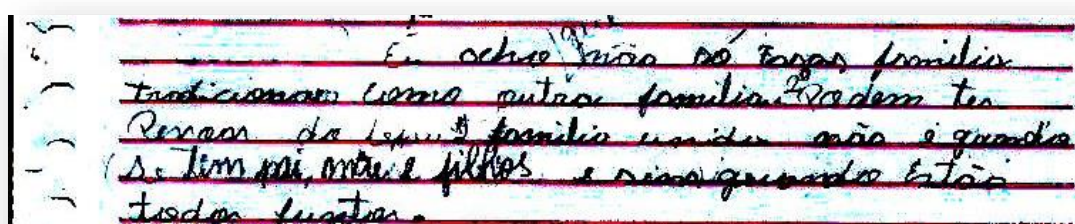 Eu acho que não só essas familia
tradicionais como outras familias Podem ter
Pessoas do familia unida não é quando
se tem pai, mãe e filhos e sim quando Estão
todos juntos.